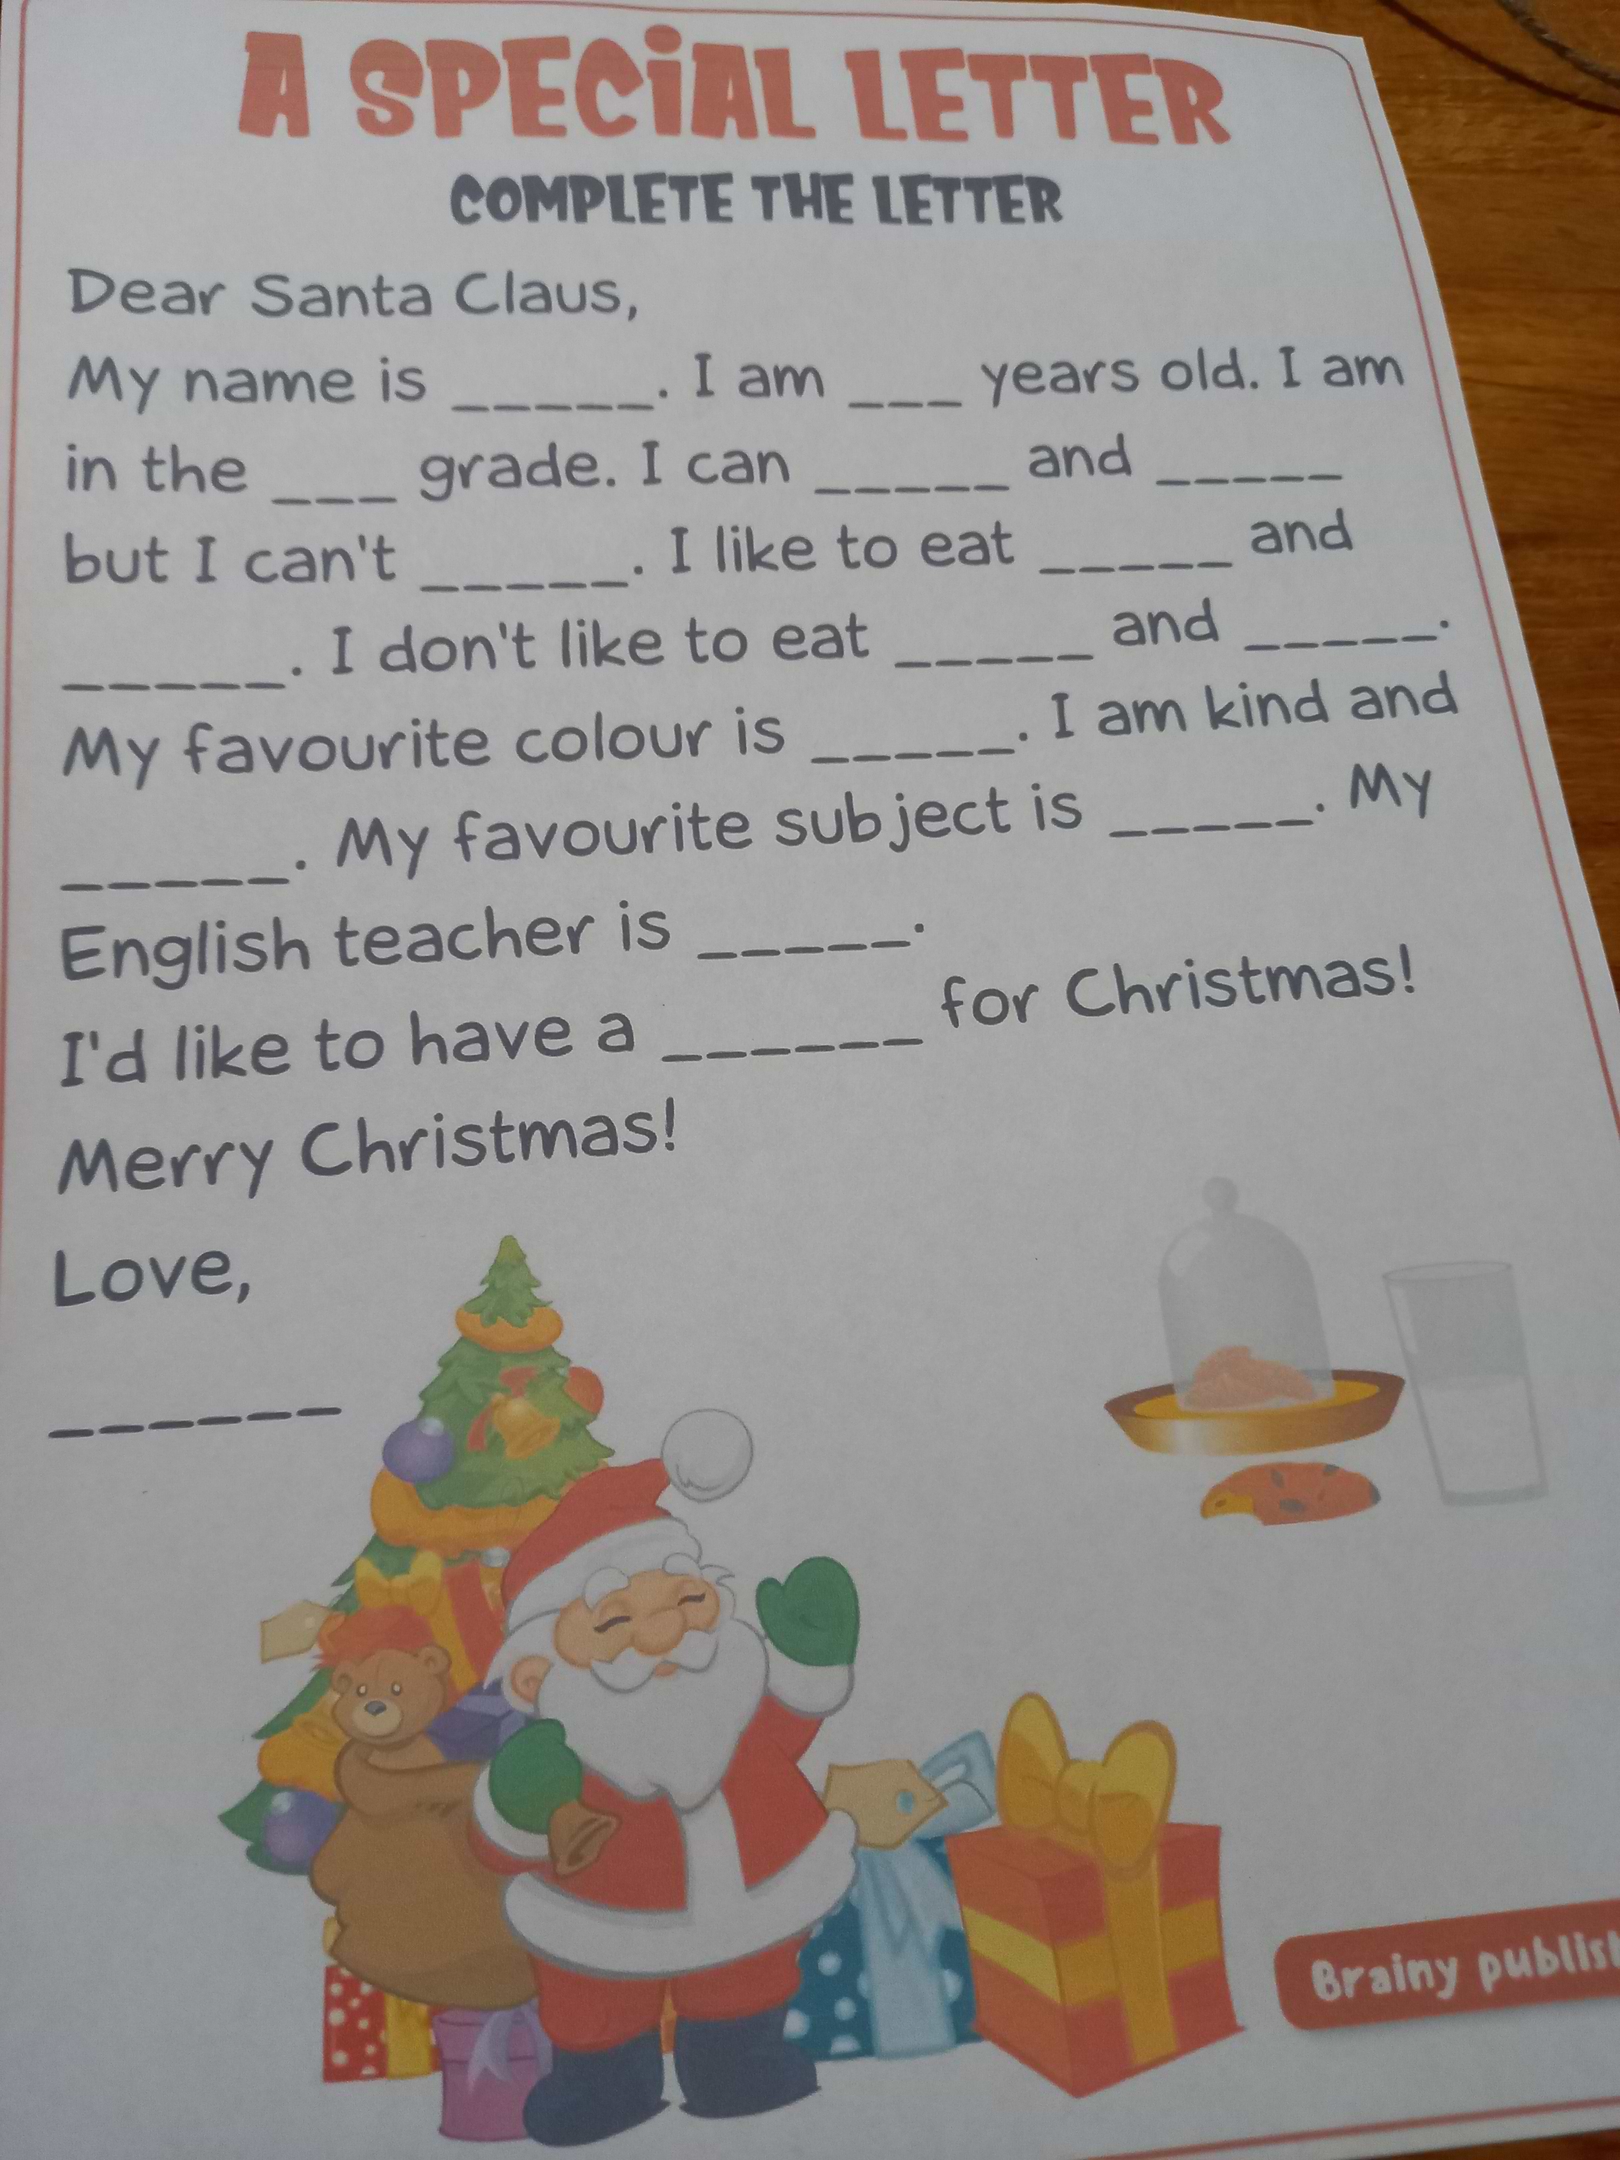 A SPECiAL LETTER
COMPLETE THE LETTER
Dear Santa Claus,
My name is _____. I am ___ years old. I am
in the ___ grade. I can _____ and _____
but I can't _____. I like to eat _____ and
_____. I don't like to eat _____ and _____.
My favourite colour is _____. I am kind and
_____. My favourite subject is _____. My
English teacher is _____.
I'd like to have a ______ for Christmas!
Merry Christmas!
Love,
______
Brainy